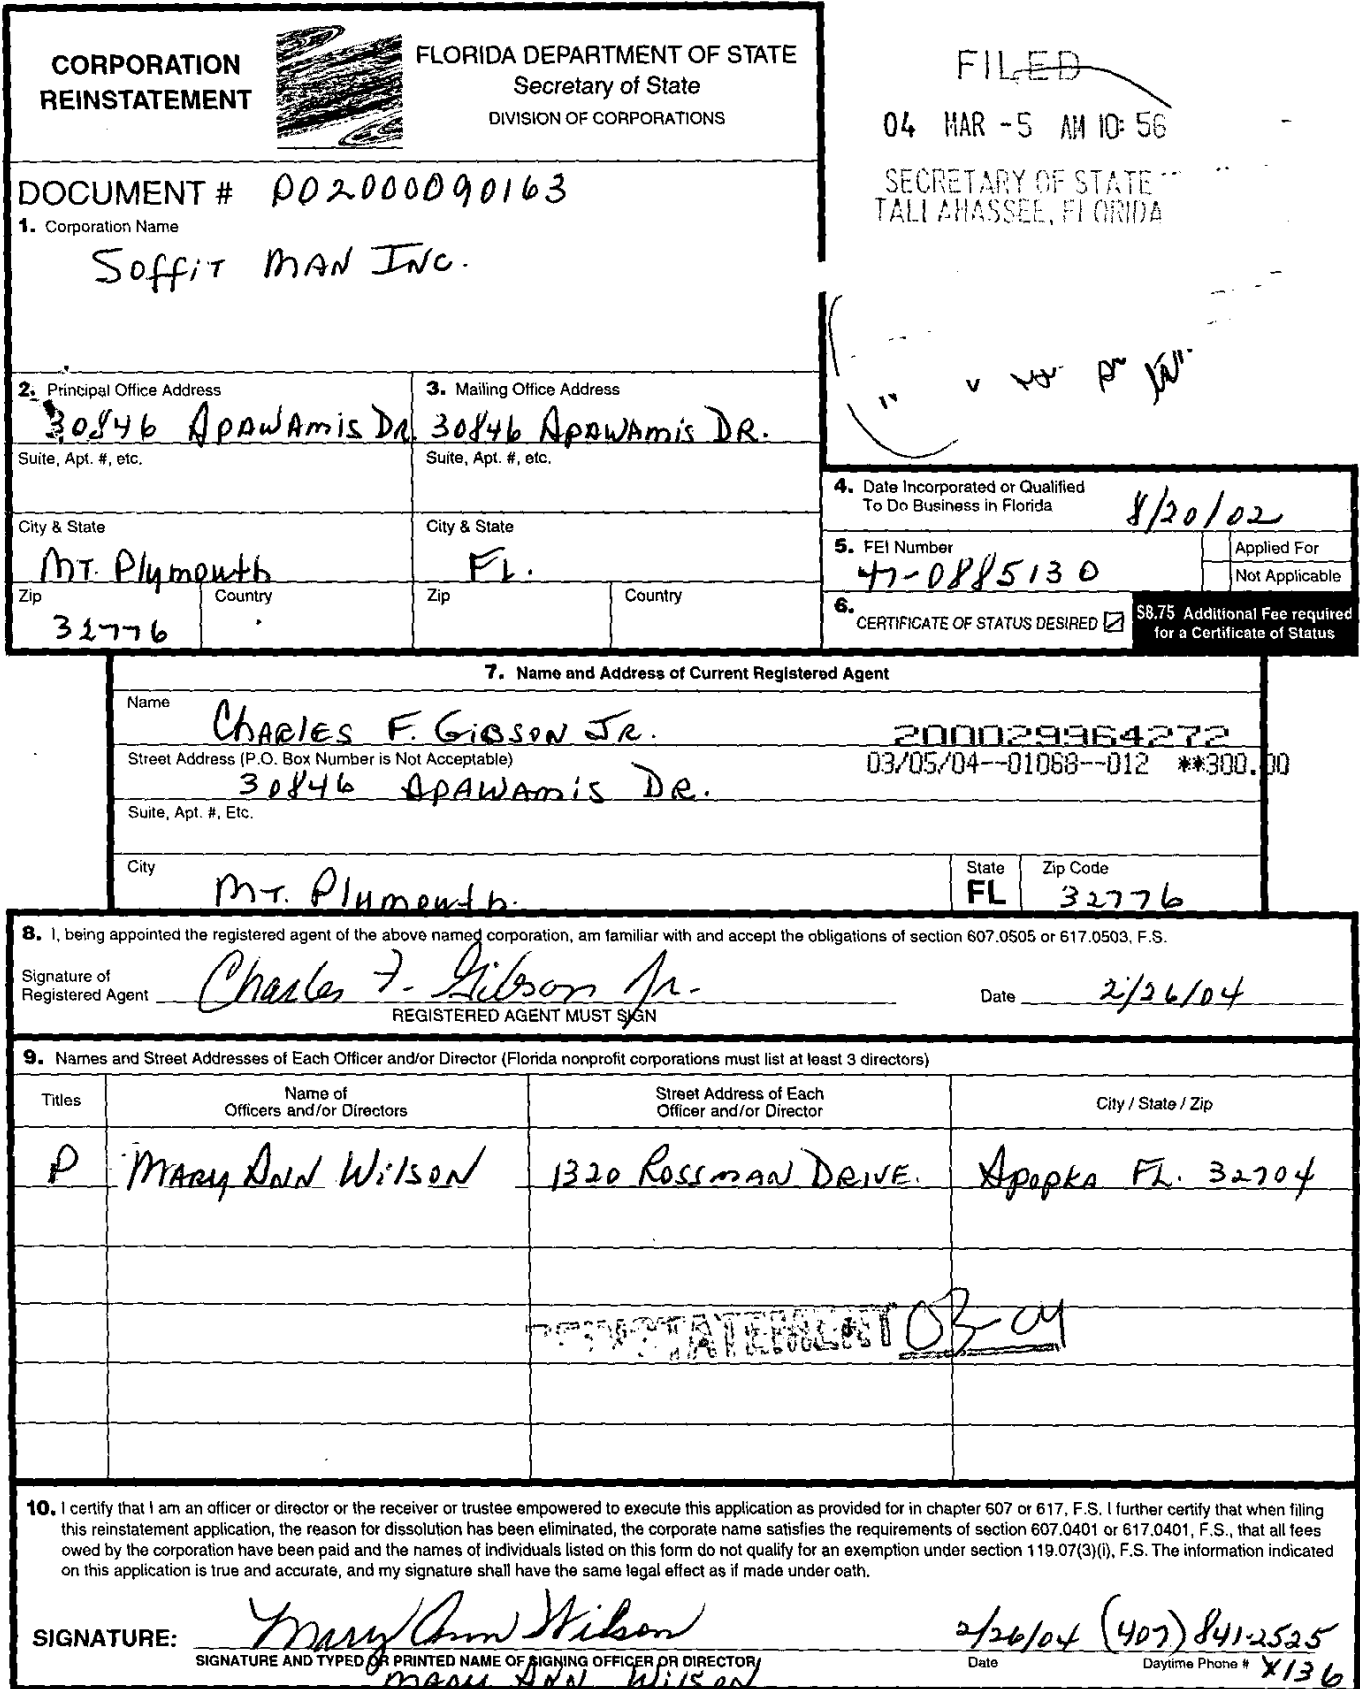 CORPORATION
REINSTATEMENT
FLORIDA DEPARTMENT OF STATE
Secretary of State
DIVISION OF CORPORATIONS
FILED
04 MAR -5 AM 10:56
SECRETARY OF STATE
TALLAHASSEE, FLORIDA
DOCUMENT # P02000090163
1. Corporation Name
Soffit Man Inc.
2. Principal Office Address
30846 Apawamis Dr.
3. Mailing Office Address
30846 Apawamis Dr.
Suite, Apt. #, etc.
Suite, Apt. #, etc.
City & State
Mt. Plymouth
City & State
FL.
Zip
32776
Country
Zip
Country
4. Date Incorporated or Qualified
To Do Business in Florida
8/20/02
5. FEI Number
47-0885130
Applied For
Not Applicable
6. CERTIFICATE OF STATUS DESIRED
$8.75 Additional Fee required
for a Certificate of Status
7. Name and Address of Current Registered Agent
Name
Charles F. Gibson Jr.
200029964272
03/05/04--01068--012 **300.00
Street Address (P.O. Box Number is Not Acceptable)
30846 Apawamis Dr.
Suite, Apt. #, Etc.
City
Mt. Plymouth.
State
FL
Zip Code
32776
8. I, being appointed the registered agent of the above named corporation, am familiar with and accept the obligations of section 607.0505 or 617.0503, F.S.
Signature of
Registered Agent Charles F. Gibson Jr.
REGISTERED AGENT MUST SIGN
Date 2/26/04
9. Names and Street Addresses of Each Officer and/or Director (Florida nonprofit corporations must list at least 3 directors)
Titles
Name of
Officers and/or Directors
Street Address of Each
Officer and/or Director
City / State / Zip
P Mary Ann Wilson 1320 Rossman Drive. Apopka FL. 32704
REINSTATEMENT 03-04
10. I certify that I am an officer or director or the receiver or trustee empowered to execute this application as provided for in chapter 607 or 617, F.S. I further certify that when filing
this reinstatement application, the reason for dissolution has been eliminated, the corporate name satisfies the requirements of section 607.0401 or 617.0401, F.S., that all fees
owed by the corporation have been paid and the names of individuals listed on this form do not qualify for an exemption under section 119.07(3)(i), F.S. The information indicated
on this application is true and accurate, and my signature shall have the same legal effect as if made under oath.
SIGNATURE: Mary Ann Wilson 2/26/04 (407) 841-2525
SIGNATURE AND TYPED OR PRINTED NAME OF SIGNING OFFICER OR DIRECTOR
Date
Daytime Phone # X136
Mary Ann Wilson